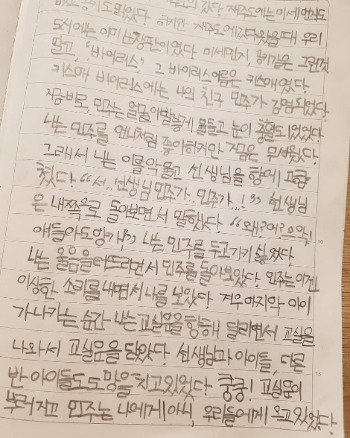 도시에는 이미 난장판이었다. 미세먼지, 황사같은 그런것
말고, "바이러스" 그 바이러스이름은 키스매였다.
키스매 바이러스에는 나의 친구 민주가 감염되었다.
지금 바로, 민주는 얼굴이 파랗게 물들고 눈이 충혈되있었다
나는 민주를 언니처럼 좋아하지만 지금은 무서웠다.
그래서 나는 이를 악물고 선생님을 향해 고함
쳤다 "서..선생님 민주가..민주가..!" 선생님
은 내쪽으로 돌아보면서 말했다. "왜그러
애들아 도망가!" 나는 민주를 두고가기 싫었다.
나는 울음을 터뜨리면서 민주를 돌아보았다. 민주는 이런
이상한 소리를 내면서 나를 보았다. 겨우 마지막 아이
가 나가는 순간 나는 교실문을 향해 달리면서 교실을
나와서 교실문을 닫았다. 선생님과 아이들, 다른
반 아이들도 도망을 치고있었다. 쿵쿵! 교실문이
부러지고 민주는 나에게 아니, 우리들에게 오고있었다.